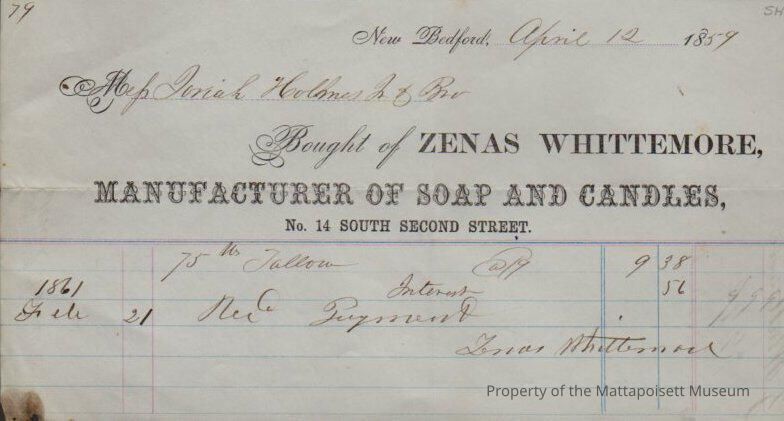 79
New Bedford, April 12 1859
Mess Josiah Holmes Jr & Bro
Bought of ZENAS WHITTEMORE,
MANUFACTURER OF SOAP AND CANDLES,
No. 14 SOUTH SECOND STREET.
75 lbs Tallow 9 38
1861 Interest 56
Feb 21 Recd Payment
Zenas Whittemore
Property of the Mattapoisett Museum